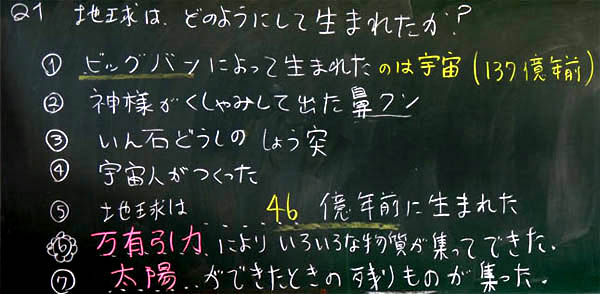 Q1 地球は、どのようにして生まれたか?
① ビッグバンによって生まれたのは宇宙(137億年前)
② 神様がくしゃみして出た鼻クソ
③ いん石どうしのしょう突
④ 宇宙人がつくった
⑤ 地球は 46億年前に生まれた
⑥ 万有引力によりいろいろな物質が集ってできた.
⑦ 太陽ができたときの残りものが集った.